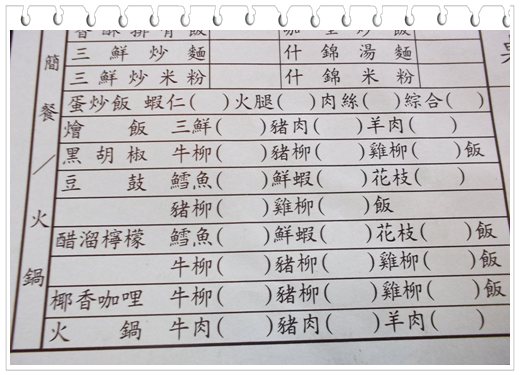 香酥排骨飯
三鮮炒麵 什錦湯麵
三鮮炒米粉 什錦米粉
簡餐／火鍋
蛋炒飯 蝦仁( )火腿( )肉絲( )綜合( )
燴飯 三鮮( )豬肉( )羊肉( )
黑胡椒 牛柳( )豬柳( )雞柳( )飯
豆鼓 鱈魚( )鮮蝦( )花枝( )
豬柳( )雞柳( )飯
醋溜檸檬 鱈魚( )鮮蝦( )花枝( )飯
牛柳( )豬柳( )雞柳( )飯
椰香咖哩 牛柳( )豬柳( )雞柳( )飯
火鍋 牛肉( )豬肉( )羊肉( )